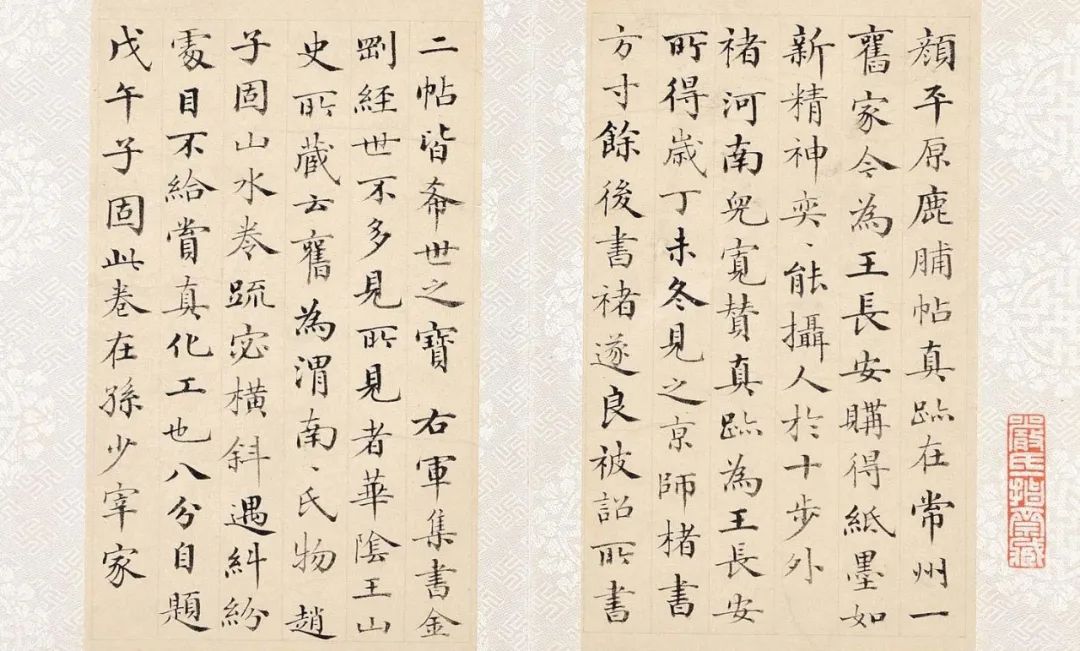 顏平原鹿脯帖真跡在常州一
舊家今為王長安購得紙墨如
新精神奕、能攝人於十步外
褚河南兒寬贊真跡為王長安
所得歲丁未冬見之京師楮書
方寸餘後書褚遂良被詔所書
二帖皆希世之寶右軍集書金
剛經世不多見所見者華陰王山
史所藏云舊為渭南、氏物趙
子固山水卷疏密橫斜遇糾紛
處目不給賞真化工也八分自題
戊午子固此卷在孫少宰家